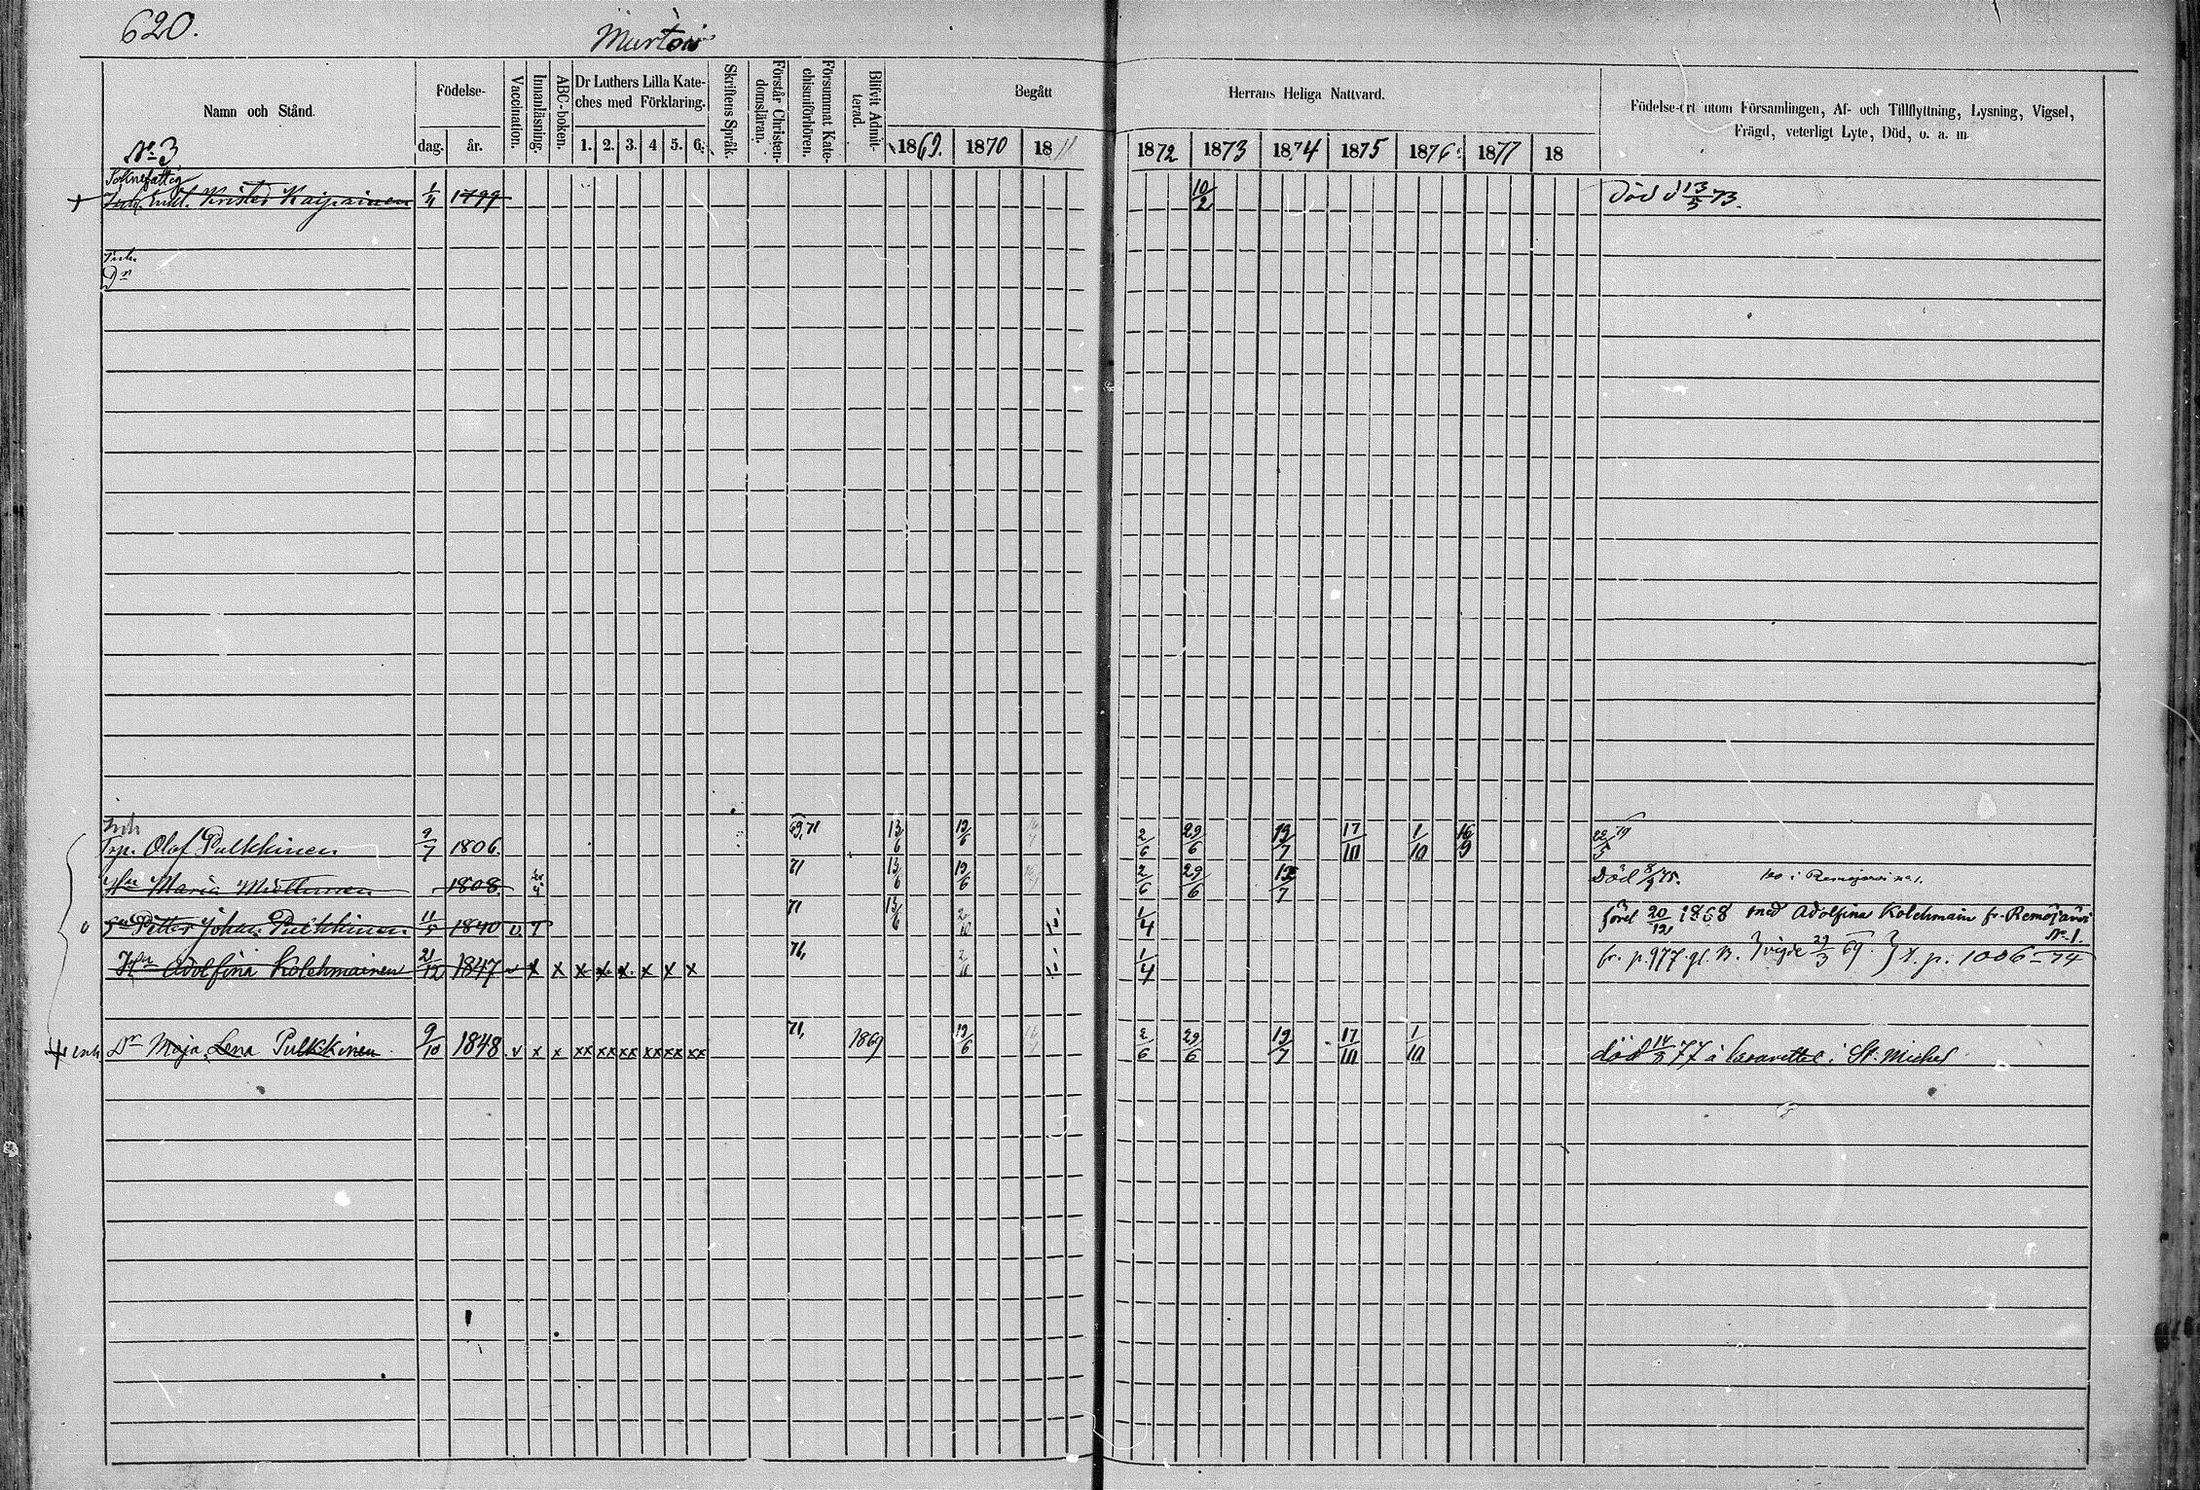 620.
Namn och Stånd.
Födelse-
dag.
år.
Vaccination.
Innanläsning.
ABC-boken.
Dr Luthers Lilla Kate-
ches med Förklaring.
1. 2. 3. 4 5. 6.
Skriftens Språk.
Förstår Christen-
domsläran.
Försummat Kate-
chismiförhören.
Blifvit Admit-
terad.
Begått
Herrans Heliga Nattvard.
1869. 1870 18
1872 1873 1874 1875 1876 1877 18
Födelse-ort utom Församlingen, Af- och Tillflyttning, Lysning, Vigsel,
Frägd, veterligt Lyte, Död, o. a. m.
No 3
Kaipainen 1/4 1799 10/2 död d 13/5 73.
Inh.
Dr
Inh
Olof Pulkkinen 9/7 1806. 69,71 13/6 2/6 29/6 19/7 17/10 1/10 16/9
Maria 1808. 71 13/6 2/6 29/6 Död 75.
Petter Johan Pulkkinen 11/5 1840 v 71 13/6 1/4 20/12 1868 med Adolfina Kolehmain fr. Remojärvi
No 1.
Hu Adolfina Kolehmainen 21/12 1847 v x x x x x x x x 71, 1/4 fr. p. 977. gl. B. vigde 29/3 69. p. 1006 – 74
inh Dr Maja Lena Pulkkinen 9/10 1848 v x x xx xx xx xx xx xx 71, 1869 2/6 29/6 19/7 17/10 1/10 död 77 St. Michel